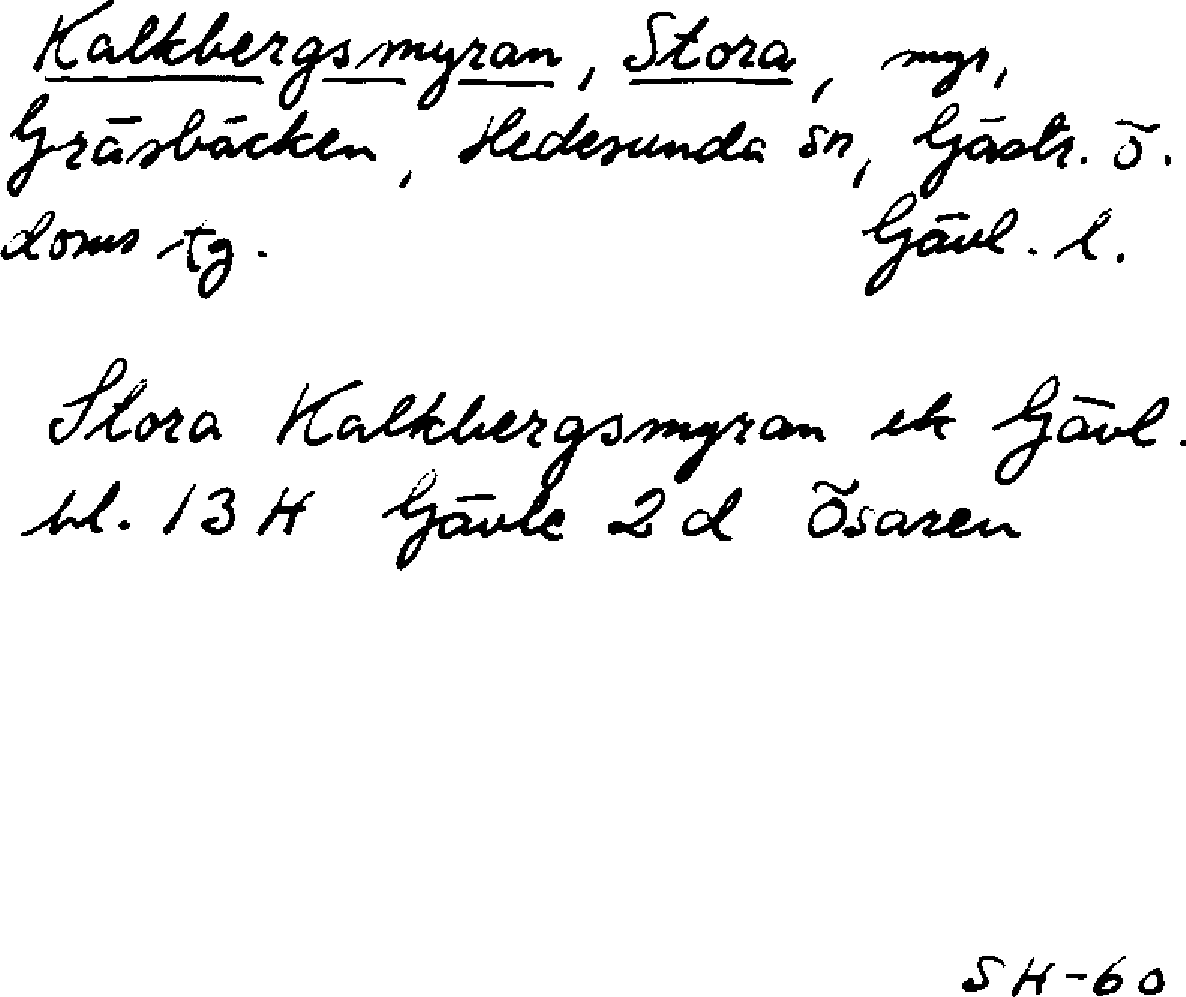 Kalkbergsmyran, Stora, myr,
Gräsbäcken, Hedesunda sn, Gästr. ö.
doms tg. Gävl. l.
Stora Kalkbergsmyran ek Gävl.
bl. 13 H Gävle 2 d Ösaren
SH-60